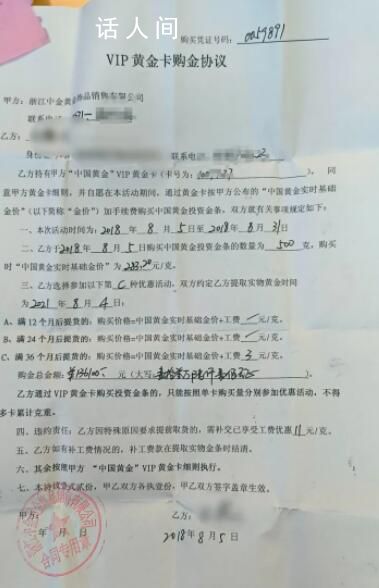 话人间
购买凭证号码: 0059891
VIP 黄金卡购金协议
甲方: 浙江中金黄金饰品销售有限公司
联系电话
乙方:
身份 联系电话
乙方持有甲方“中国黄金”VIP 黄金卡(卡号为: ), 同
意甲方黄金卡细则, 并自愿在本活动期间, 通过黄金卡按甲方公布的“中国黄金实时基础
金价”(以下简称“金价”)加手续费购买中国黄金投资金条, 双方就有关事项规定如下:
一、本次活动时间为: 2018 年 8 月 5 日至 2018 年 8 月 31 日
二、乙方于 2018 年 8 月 5 日购买中国黄金投资金条的数量为 500 克, 购买
时“中国黄金实时基础金价”为 元/克。
三、乙方选择参加以下第 C 种优惠活动, 双方约定乙方提取实物黄金时间
为 2021 年 8 月 4 日:
A、满 12 个月后提货的: 购买价格=中国黄金实时基础金价+工费 元/克;
B、满 24 个月后提货的: 购买价格=中国黄金实时基础金价+工费 元/克;
C、满 36 个月后提货的: 购买价格=中国黄金实时基础金价+工费 3 元/克;
购金总金额: 元(大写:
乙方通过 VIP 黄金卡购买投资金条的, 只能按照单卡购买量分别参加优惠活动, 不得
多卡累计克重。
四、违约责任: 乙方因特殊原因要求提前取货的, 需补交已享受工费优惠 11 元/克。
五、乙方如有补工费情况的, 补工费款在提取实物金条时结清。
六、其余按照甲方 “中国黄金”VIP 黄金卡细则执行。
七、本协议壹式贰份, 甲乙双方各执壹份, 甲乙双方签字盖章生效。
甲方: 乙方:
年 月 日 2018 年 8 月 5 日
合同专用章